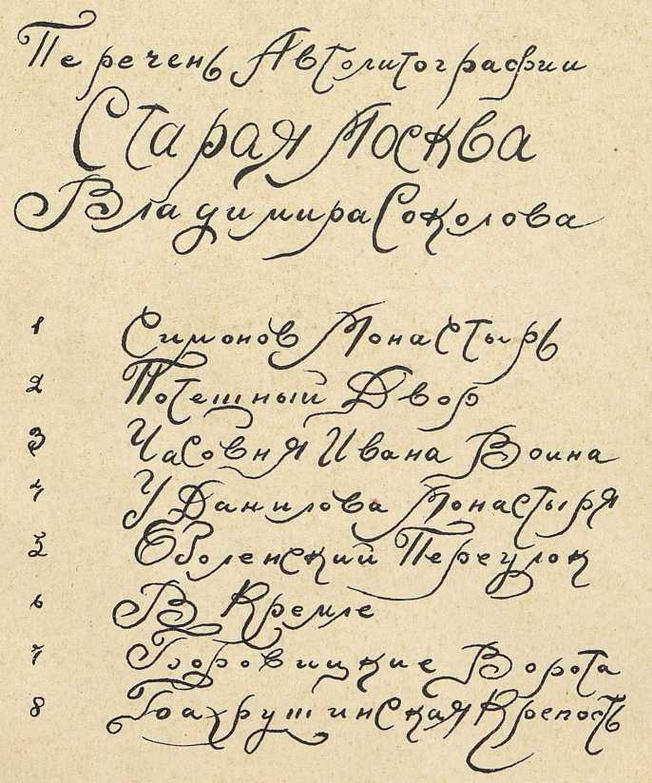 Перечень Автолитографии
Старая Москва
Владимира Соколова
1 Симонов Монастырь
2 Потешный Двор
3 Часовня Ивана Воина
4 У Данилова Монастыря
5 Оболенский Переулок
6 В Кремле
7 Боровицкие Ворота
8 Бахрушинская Крепость